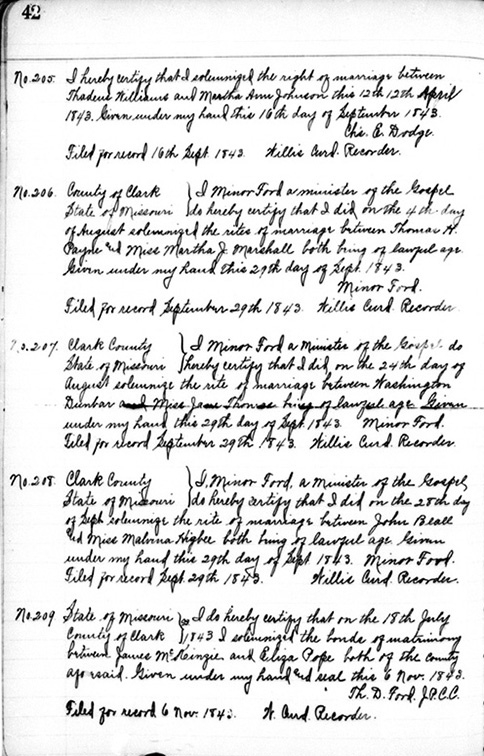 42
No. 205. I hereby certify that I solemnized the right of marriage between
Thadeus Williams and Martha Ann Johnson this 12th 12th April
1843. Given under my hand this 16th day of September 1843.
Chs. E. Dodge.
Filed for record 16th Sept 1843. Willis Curd. Recorder.
No. 206. County of Clark } I Minor Ford a minister of the Gospel
State of Missouri } do hereby certify that I did, on the 4th day
of August solemnized the rites of marriage between Thomas H.
Payne and Miss Martha J. Marshall both bing of lawful age
Given under my hand this 29th day of Sept. 1843.
Minor Ford.
Filed for record September 29th 1843. Willis Curd. Recorder
No. 207. Clark County } I Minor Ford a Minister of the Gospel do
State of Missouri } hereby certify that I did on the 24th day of
August solemnize the rite of marriage between Washington
Dunbar and Miss Jane Thomas bing of lawful age Given
under my hand this 29th day of Sept. 1843. Minor Ford.
Filed for record September 29th 1843. Willis Curd Recorder.
No. 208. Clark County } I, Minor Ford, a Minister of the Gospel,
State of Missouri } do hereby certify that I did on the 28th day
of Sept solemnize the rite of marriage between John Beall
and Miss Malvina Higbee both bing of lawful age Given
under my hand this 29th day of Sept 1843. Minor Ford.
Filed for record Sept. 29th 1843. Willis Curd Recorder.
No. 209 State of Missouri } I do hereby certify that on the 18th July
County of Clark } 1843 I solemnized the bonds of matrimony
between James McKinzie and Eliza Pope both of the county
afo rsaid. Given under my hand and seal this 6 Nov. 1843.
Th. D. Ford. J.P.C.C.
Filed for record 6 Nov. 1843. W. Curd. Recorder.